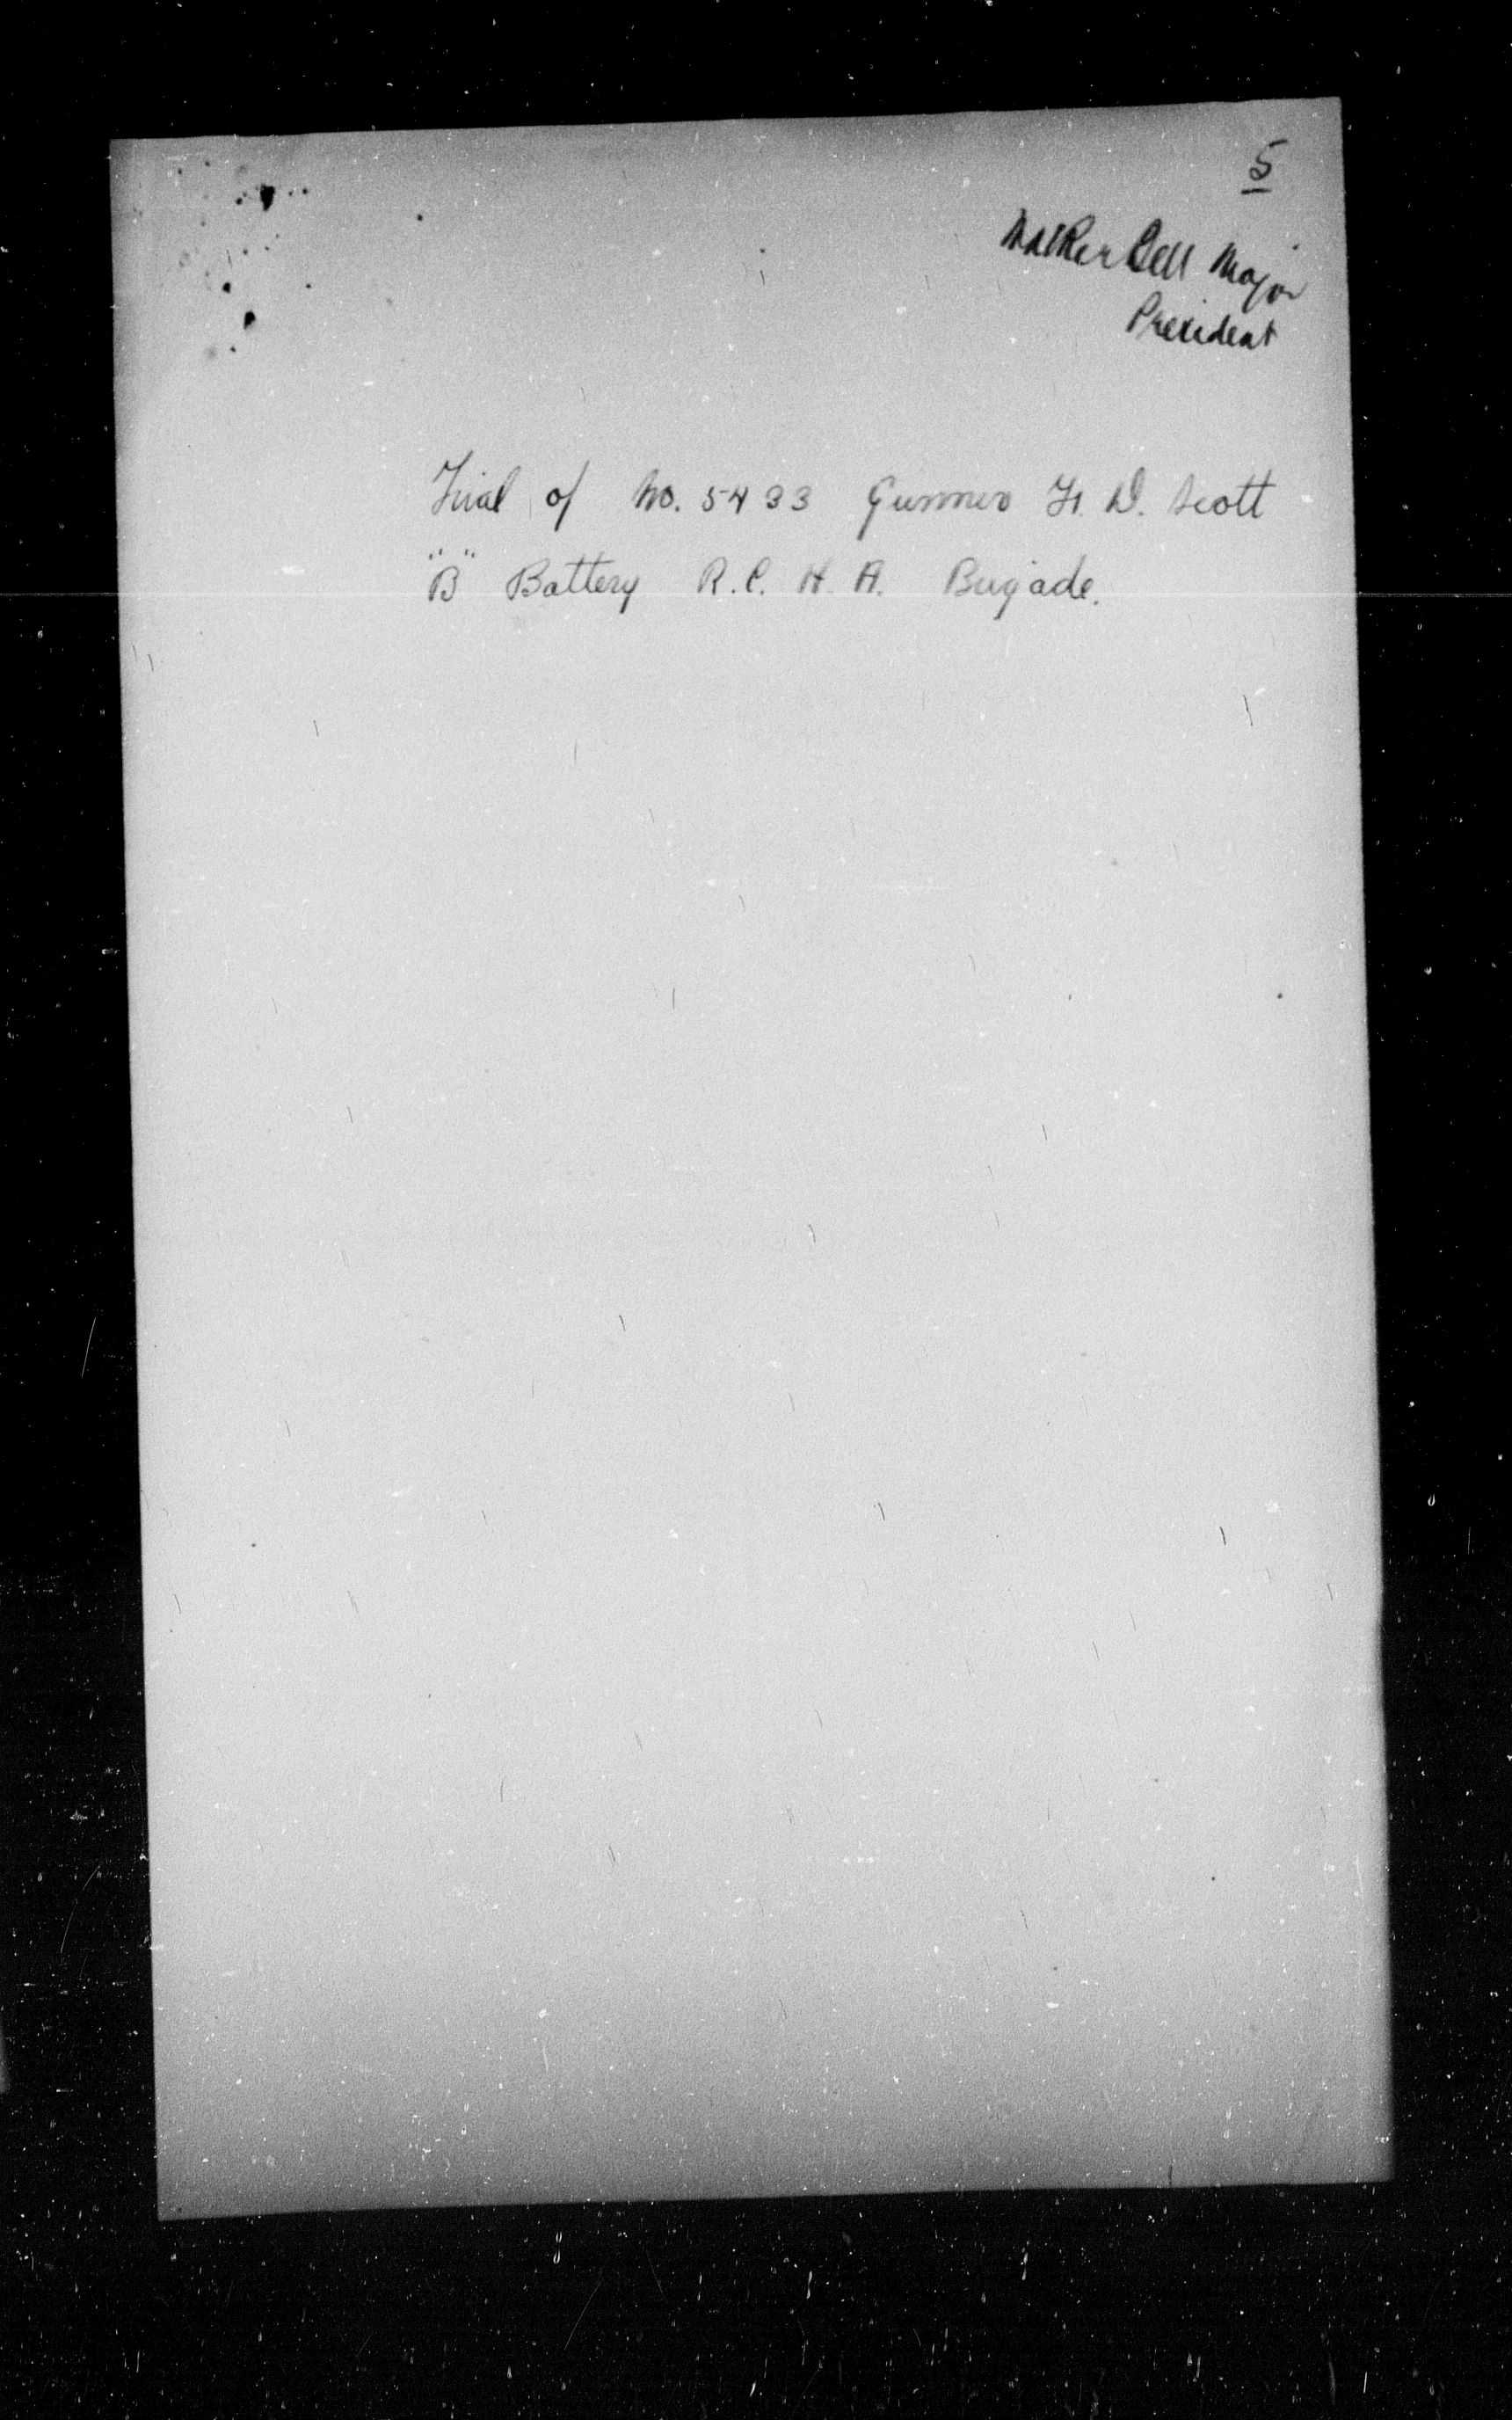 5
Walker Bell Major
President
Trial of No. 5433 Gunner H. D. Scott
"B" Battery R. C. H. A. Brigade.